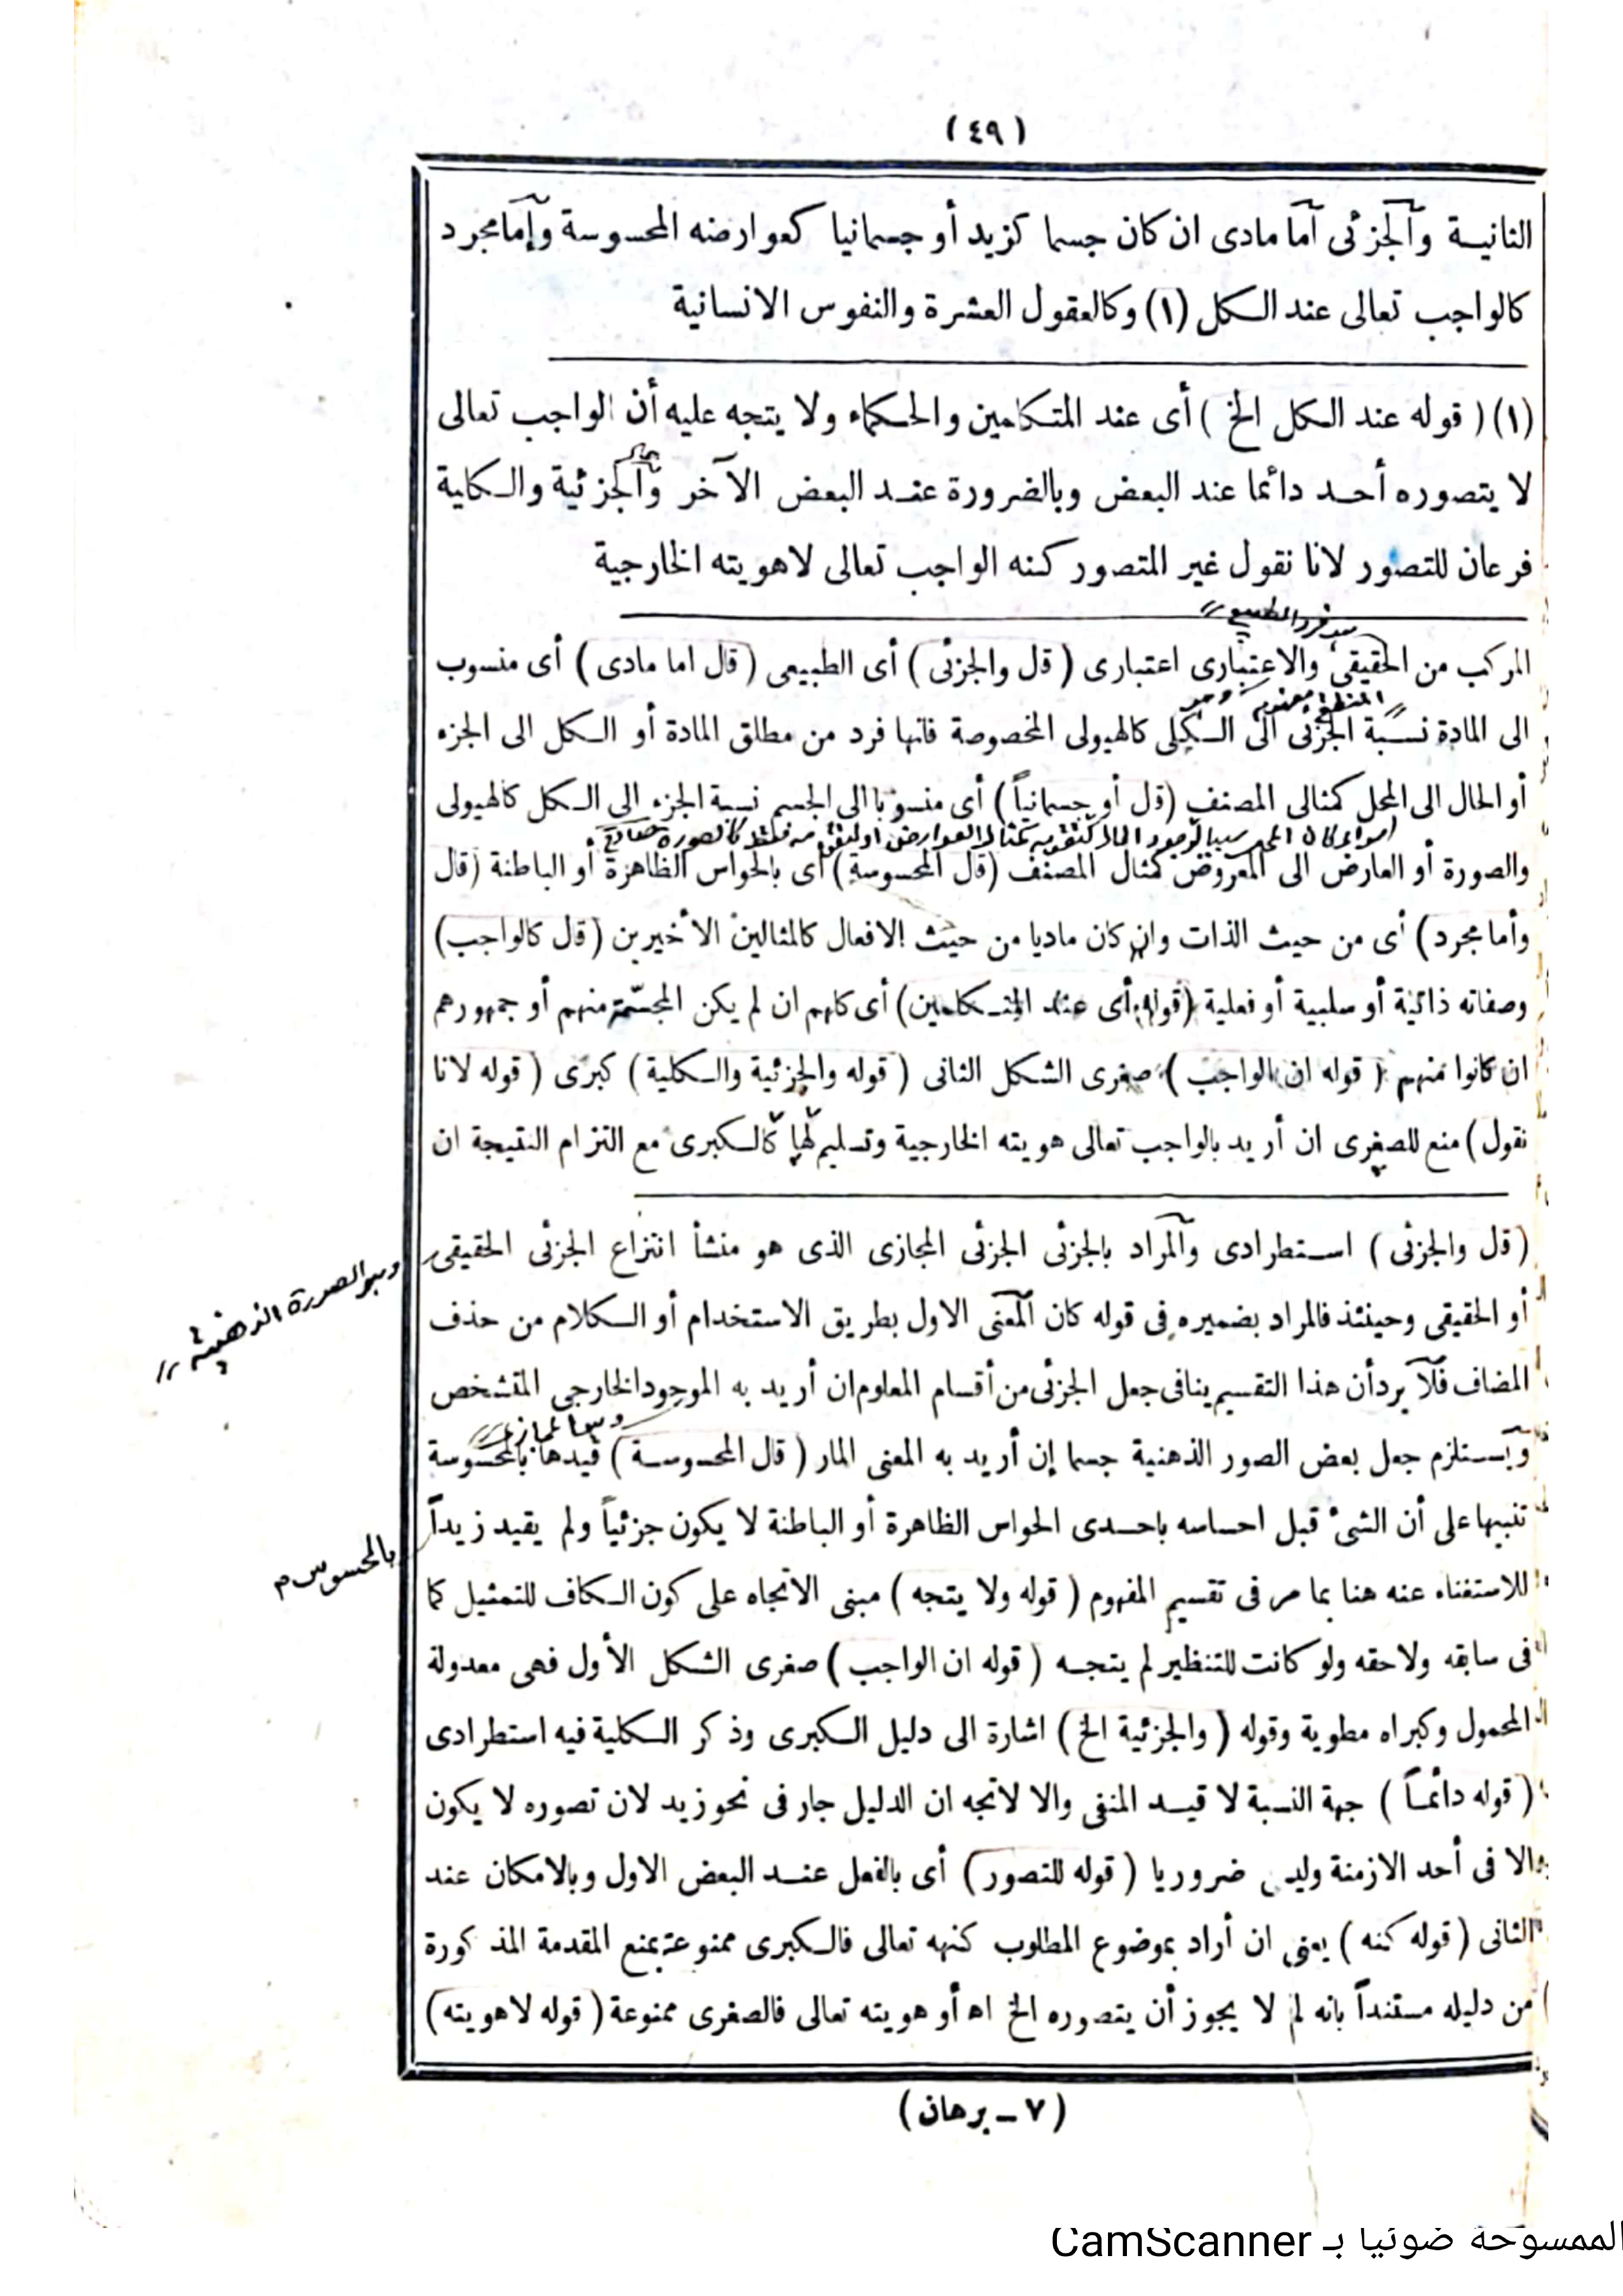 (٤٩)
الثانيـة والجزئى اما مادى ان كان جسما كزيد أو جسمانيا كعوارضه المحسوسة وإما مجرد
كالواجب تعالى عند الـكل (١) وكالعقول العشرة والنفوس الانسانية
(١) ( قوله عند الـكل الخ ) أى عند المتـكلمين والحـكماء ولا يتجه عليه أن الواجب تعالى
لا يتصوره أحـد دائما عند البعض وبالضرورة عنـد البعض الآخر والجزئية والـكلية
فرعان للتصور لانا نقول غير المتصور كنه الواجب تعالى لاهويته الخارجية
المركب من الحقيقى والاعتبارى اعتبارى ( قل والجزئى ) أى الطبيعى ( قال اما مادى ) أى منسوب
الى المادة نسـبة الجزئى الى الـكلى كالهيولى المخصوصة فانها فرد من مطلق المادة أو الـكل الى الجزء
أو الحال الى المحل كمثالى المصنف (قل أو جسمانياً ) أى منسوبا الى الجسم نسبة الجزء الى الـكل كالهيولى
والصورة أو العارض الى المعروض كمثال المصنف (قل المحسوسة) أى بالحواس الظاهرة أو الباطنة (قال
وأما مجرد ) أى من حيث الذات وان كان ماديا من حيث الافعال كالمثالين الأخيرين ( قل كالواجب)
وصفاته ذاتية أو سلبية أو فعلية (قوله أى عند المتـكلمين) أى كلهم ان لم يكن المجسّمة منهم أو جمهورهم
ان كانوا منهم ( قوله ان الواجب ) صغرى الشكل الثانى ( قوله والجزئية والـكلية ) كبرى ( قوله لانا
نقول) منع للصغرى ان أريد بالواجب تعالى هويته الخارجية وتسليم لها كالـكبرى مع التزام النتيجة ان
( قل والجزئى ) اسـتطرادى والمراد بالجزئى الجزئى المجازى الذى هو منشأ انتزاع الجزئى الحقيقى
وهو الصورة الذهنية
أو الحقيقى وحينئذ فالمراد بضميره فى قوله كان المعنى الاول بطريق الاستخدام أو الـكلام من حذف
المضاف فلا يرد أن هذا التقسيم ينافى جعل الجزئى من أقسام المعلوم ان أريد به الموجود الخارجى المتشخص
ويسـتلزم جعل بعض الصور الذهنية جسما إن أريد به المعنى المار ( قال المحسوسـة ) قيدها بالمحسوسة
تنبيها على أن الشئ قبل احساسه باحـدى الحواس الظاهرة أو الباطنة لا يكون جزئياً ولم يقيد زيداً
بالمحسوس م
للاستغناء عنه هنا بما مر فى تقسيم المفهوم ( قوله ولا يتجه ) مبنى الاتجاه على كون الـكاف للتمثيل كما
فى سابقه ولاحقه ولو كانت للتنظير لم يتجـه ( قوله ان الواجب ) صغرى الشـكل الأول فهى معدولة
المحمول وكبراه مطوية وقوله ( والجزئية الخ ) اشارة الى دليل الـكبرى وذكر الـكلية فيه استطرادى
( قوله دائمـاً ) جهة النسبة لا قيـد المنفى والا لاتجه ان الدليل جار فى نحو زيد لان تصوره لا يكون
الا فى أحد الازمنة وليس ضروريا ( قوله للتصور ) أى بالفعل عنـد البعض الاول وبالامكان عند
الثانى ( قوله كنه ) يعنى ان أراد بموضوع المطلوب كنهه تعالى فالـكبرى ممنوعة بمنع المقدمة المذكورة
من دليله مستنداً بانه لم لا يجوز أن يتصوره الخ اه أو هويته تعالى فالصغرى ممنوعة ( قوله لاهويته )
(٧ ـ برهان)
الممسوحة ضوئيا بـ CamScanner